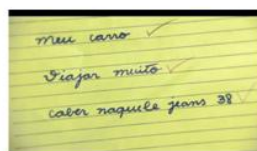 meu carro ✓
viajar muito ✓
caber naquele jeans 38 ✓